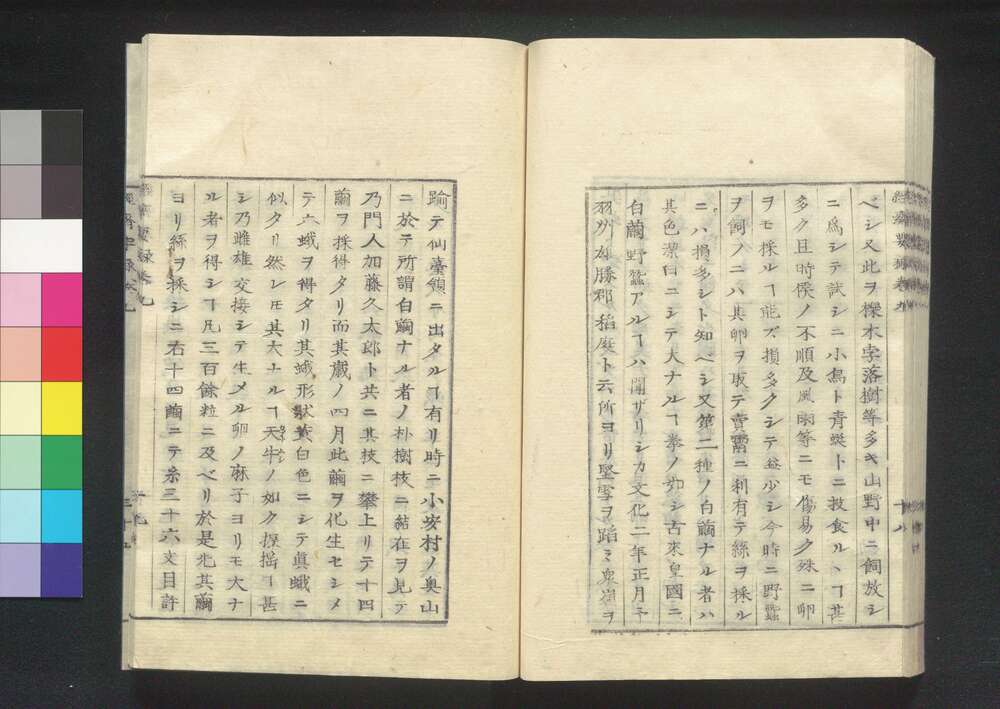 ベシ又此ヲ櫟木字落樹等多キ山野中ニ飼放シ
ニ爲シテ試シニ小鳥ト青蜓トニ投食ルヽヿ甚
多ク且時候ノ不順及風雨等ニモ傷易ク殊ニ卵
ヲモ採ルヿ能ズ損多クシテ益少シ今時ニ野蠶
ヲ飼ノニハ其卵ヲ取テ賣鬻ニ利有テ絲ヲ採ル
ニハ損多シト知ベシ又第二種ノ白繭ナル者ハ
其色潔白ニシテ大ナルヿ拳ノ如シ古來皇國ニ
白繭野蠶アルヿハ聞ザリシカ文化二年正月予
羽州雄勝郡稻庭ト云所ヨリ堅雪ヲ蹈ミ泉嵓ヲ
踰テ仙臺領ニ出タルヿ有リ時ニ小安村ノ奥山
ニ於テ所謂白繭ナル者ノ朴樹枝ニ結在ヲ見テ
乃門人加藤久太郎ト共ニ其枝ニ攀上リテ十四
繭ヲ採得タリ而其歳ノ四月此繭ヲ化生セシメ
テ六蛾ヲ得タリ其蛾形狀黄白色ニシテ眞蛾ニ
似タリ然レモ其大ナルヿ天牛ノ如ク振搖ヿ甚
シ乃雌雄交接シテ生メル卵ノ麻子ヨリモ大ナ
ル者ヲ得シヿ凡三百餘粒ニ及ベリ於是先其繭
ヨリ絲ヲ採シニ右十四繭ニテ糸三十六文目許